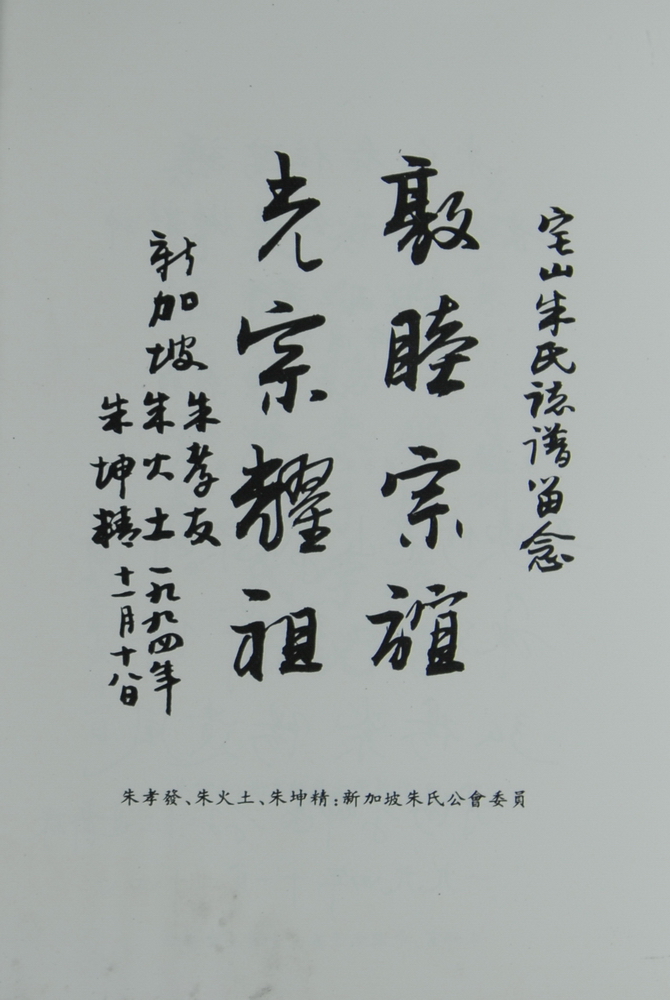 宅山朱氏誌譜留念
敦睦宗誼
光宗耀祖
新加坡
朱孝友
朱火土
朱坤精
一九九四年
十一月十八日
朱孝發、朱火土、朱坤精：新加坡朱氏公會委員